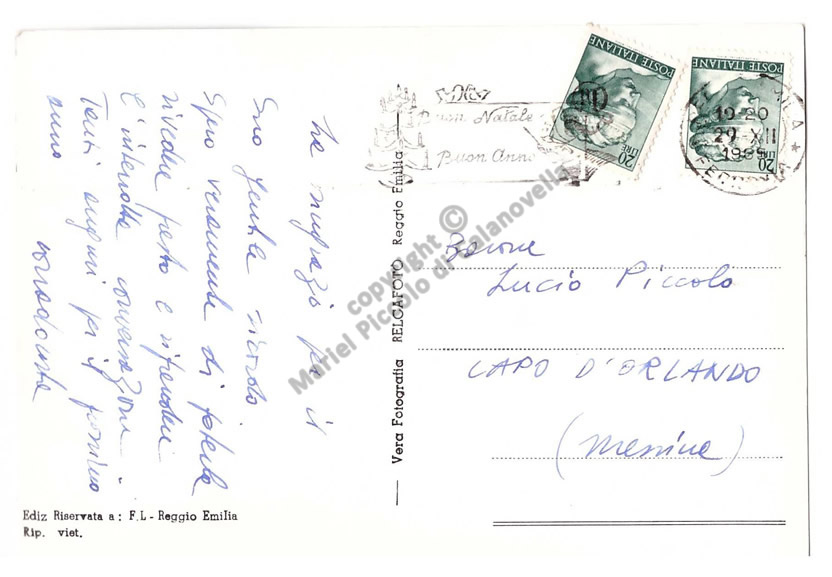 La ringrazio per il
Suo gentile ricordo.
Spero veramente di poterla
rivedere presto e riprendere
l'interrotta conversazione.
Tanti auguri per il prossimo
anno
Ediz Riservata a: F.L - Reggio Emilia
Rip. viet.
Vera Fotografia RELGAFOTO Reggio Emilia
Buon Natale
Buon Anno
POSTE ITALIANE
20 LIRE
POSTE ITALIANE
20 LIRE
19-20
29 XII
Barone
Lucio Piccolo
CAPO D'ORLANDO
(Messina)
copyright ©
Mariel Piccolo di Calanovella